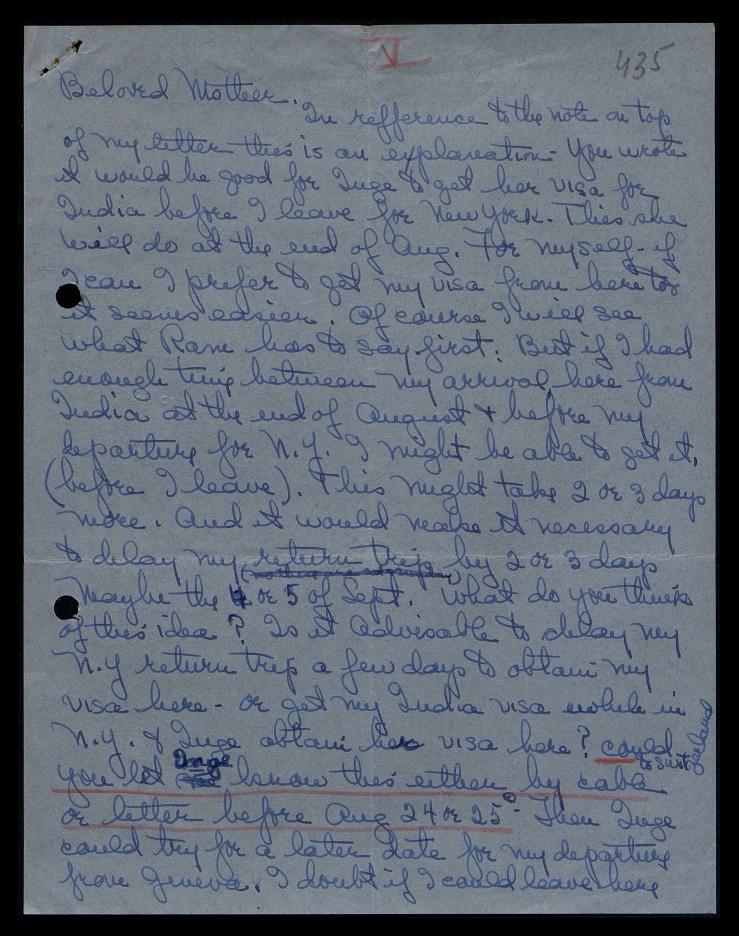 VI
435
Beloved Mother.
In refference to the note on top
of my letter this is an explanation. You wrote
it would be good for Inge to get her visa for
India before I leave for New York. This she
will do at the end of Aug. For myself - if
I can I prefer to get my visa from here too
it seems easier. Of course I will see
what Ram has to say first. But if I had
enough time between my arrival here from
India at the end of August & before my
departure for N.Y. I might be able to get it,
(before I leave). This might take 2 or 3 days
more. And it would make it necessary
to delay my return trip by 2 or 3 days
Maybe the 4 or 5 of Sept. What do you think
of this idea? Is it advisable to delay my
N.Y return trip a few days to obtain my
visa here - or get my India visa while in
N.Y. & Inge obtain her visa here? could
you let Inge know this either by cable
to Switzerland
or letter before Aug 24 or 25. Then Inge
could try for a later date for my departure
from Geneva. I doubt if I could leave here